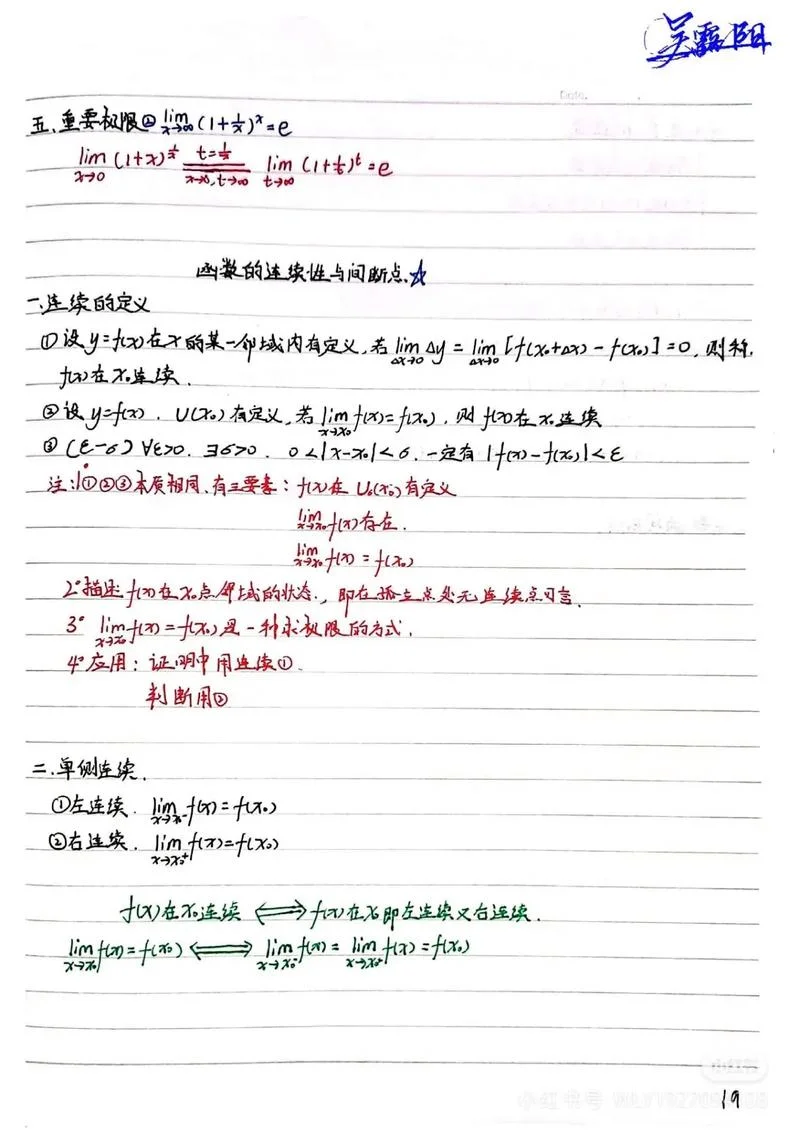 吴露阳
Date.
五、重要极限② lim x→∞ (1+1/x)^x = e
lim x→0 (1+x)^1/x t=1/x x→0, t→∞ lim t→∞ (1+1/t)^t = e
函数的连续性与间断点.☆
一.连续的定义
①设y=f(x)在x的某一邻域内有定义,若 lim Δx→0 Δy = lim Δx→0 [f(x₀+Δx)-f(x₀)]=0, 则称,
f(x)在x₀连续.
②设y=f(x). U(x₀)有定义,若 lim x→x₀ f(x)=f(x₀), 则f(x)在x₀连续
③(ε-δ) ∀ε>0. ∃δ>0. 0<|x-x₀|<δ. 一定有|f(x)-f(x₀)|<ε
注:1°①②③本质相同.有三要素: f(x)在U₀(x₀)有定义
lim x→x₀ f(x)存在.
lim x→x₀ f(x)=f(x₀)
2°描述f(x)在x₀点邻域的状态.,即在孤立点处无连续点可言.
3° lim x→x₀ f(x)=f(x₀)是一种求极限的方式.
4°应用: 证明中用连续①.
判断用②
二.单侧连续.
①左连续. lim x→x₀⁻ f(x)=f(x₀)
②右连续. lim x→x₀⁺ f(x)=f(x₀)
f(x)在x₀连续 ⟺ f(x)在x₀即左连续又右连续.
lim x→x₀ f(x)=f(x₀) ⟺ lim x→x₀⁻ f(x)= lim x→x₀⁺ f(x)=f(x₀)
小红书
19
小红书号